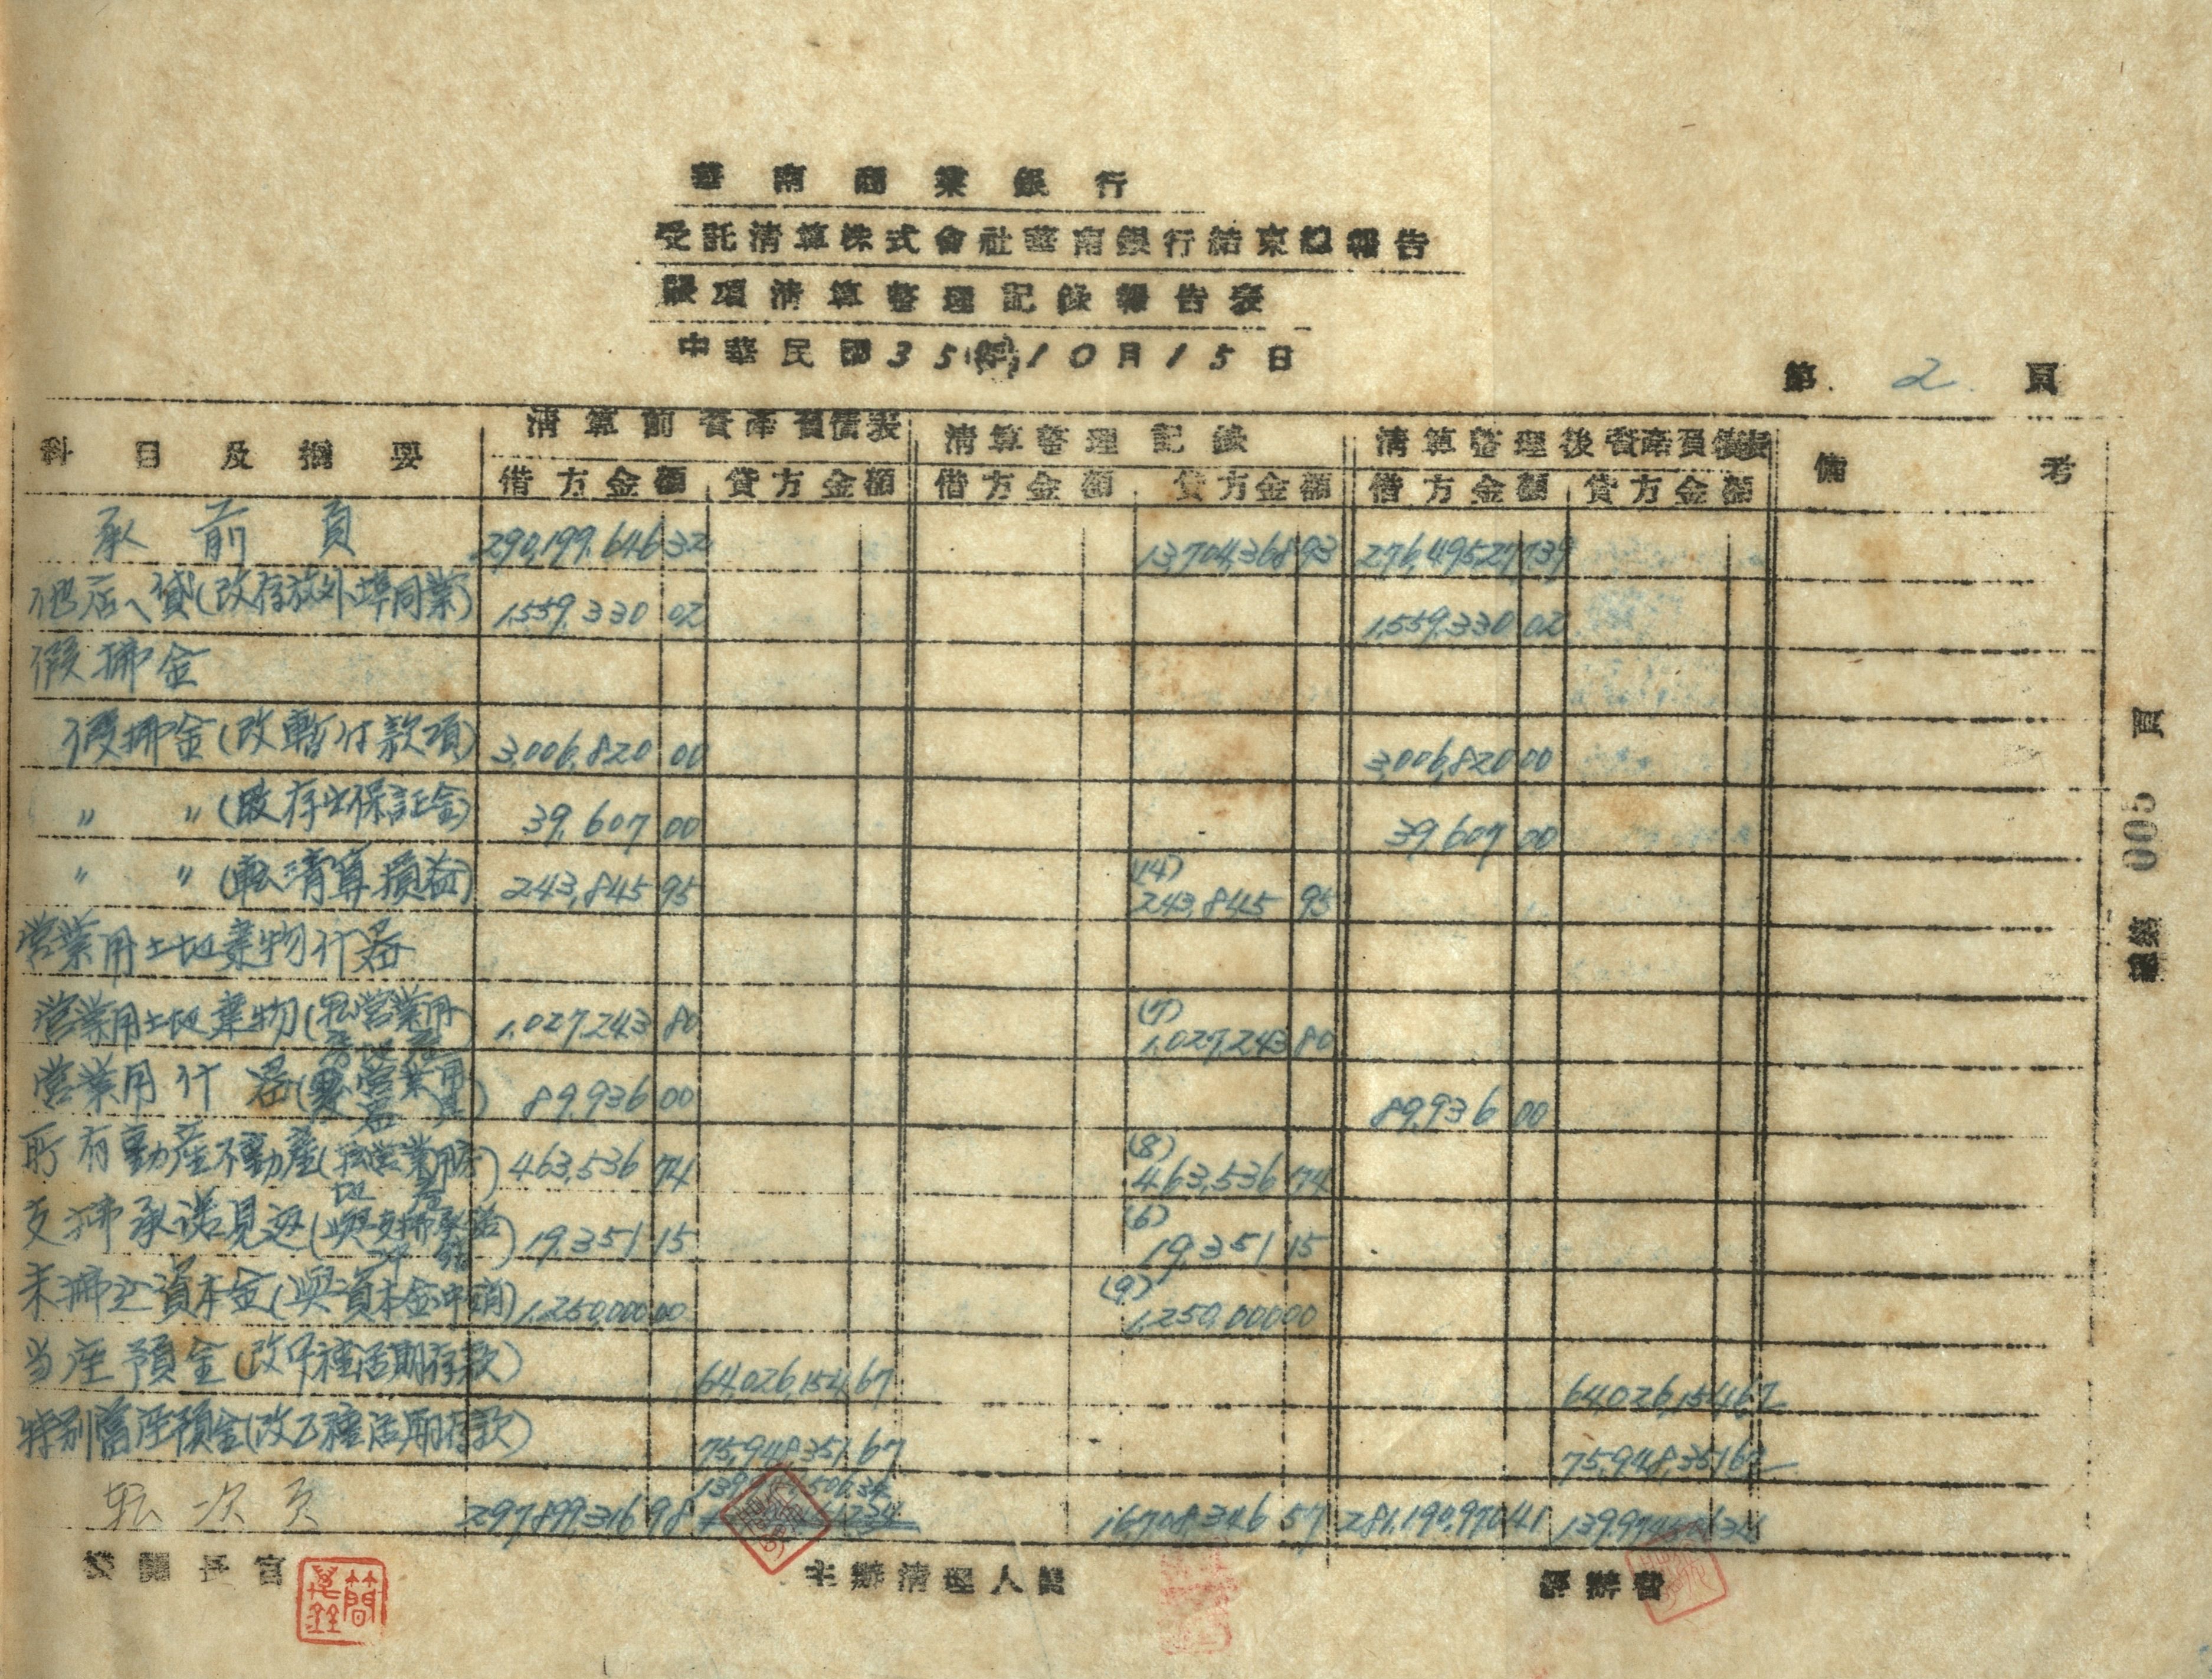 華南商業銀行
受託清算株式會社華南銀行結束總報告
賬項清算整理記錄報告表
中華民國35年10月15日
第 2 頁
科目及摘要 清算前資產負債表 清算整理記錄 清算整理後資產負債表 備考
借方金額 貸方金額 借方金額 貸方金額 借方金額 貸方金額
承前頁 290,199,646 32 13,704,368 93 276,495,277 39
他店へ貸(改存放外埠同業) 1,559,330 02 1,559,330 02
假拂金
假拂金(改暫付款項) 3,006,820 00 3,006,820 00
〃 〃 (改存出保証金) 39,607 00 39,607 00
〃 〃 (転清算損益) 243,845 95 (14) 243,845 95
営業用土地建物什器
営業用土地建物(転営業用房地產 1,027,243 80 (7) 1,027,243 80
営業用什器(改営業用器具) 89,936 00 89,936 00
所有動産不動産(転営業用房地產) 463,536 74 (8) 463,536 74
支拂承諾見返(與支拂承諾沖銷) 19,351 15 (6) 19,351 15
未拂込資本金(與資本金沖銷) 1,250,000 00 (9) 1,250,000 00
当座預金(改甲種活期存款) 64,026,154 67 64,026,154 67
特別當座預金(改乙種活期存款) 75,948,351 67 75,948,351 67
転次頁 297,899,316 98 16,708,346 57 281,190,970 41 139,974,506 34
機關長官 主辦清理人員 經辦員
簡
總號 005 頁